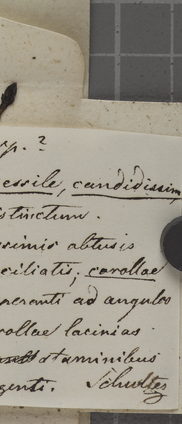 sp. ?
essile, candidissim
istinctum.
simis abtusis
ciliatis; corollae
nerenti ad angulos
rollae lacinias
staminibus
genti. Schultes